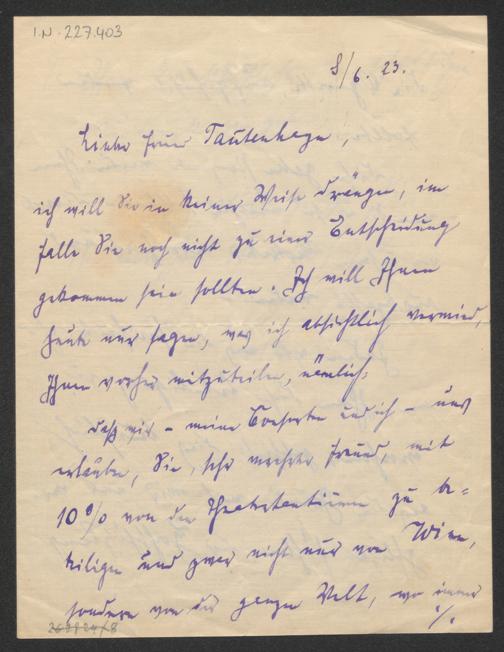 I.N. 227.403
8/6. 23.
Lieber Freund Tautenhayn,
ich will Sie in keiner Weise drängen, im
Falle Sie noch nicht zu einer Entscheidung
gekommen sein sollten. Ich will Ihnen
heute nur sagen, was ich absichtlich vermied,
Ihnen vorher mitzuteilen, nämlich:
daß wir – meine und ich – uns
erlauben, Sie, sehr werter Freund, mit
10% von den Theatertantiemen zu be=
teiligen und zwar nicht nur von Wien,
sondern von der ganzen Welt, wo immer
./.